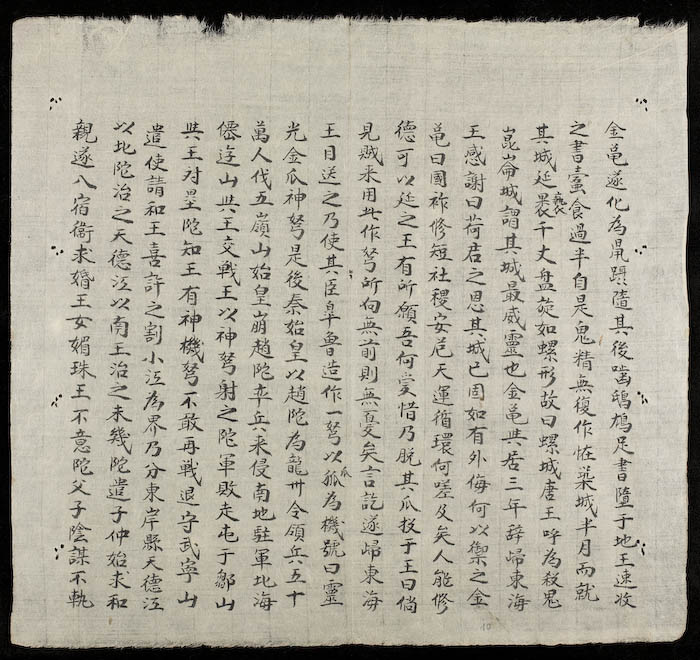 金龟遂化為鼠躡隨其後嚙鴟鳩足書墮于地王速收
之書蠹食過半自是鬼精無復作怪築城半月而就
其城延袤千丈盤旋如螺形故曰螺城唐王呼為殺鬼
崑崙城謂其城最威靈也金龟共居三年辞帰東海
王感謝曰荷君之恩其城已固如有外侮何以禦之金
龟曰國祚修短社稷安危天運循環何嗟及矣人能修
德可以延之王有所願吾何愛惜乃脱其爪投于王曰倘
見贼来用此作弩所向無前則無憂矣言訖遂帰東海
王目送之乃使其臣皐魯造作一弩以爪為機號曰靈
光金爪神弩是後秦始皇以趙陀為龍卅令領兵五十
萬人伐五嶺山始皇崩趙陀率兵来侵南地駐軍北海
僊迳山與王交戰王以神弩射之陀軍敗走屯于鄒山
與王对壘陀知王有神機弩不敢再戰退守武寧山
遣使請和王喜許之割小江為界乃分東岸縣天德江
以北陀治之天德江以南王治之未幾陀遣子仲始求和
親遂入宿衛求婚王女媚珠王不意陀父子陰謀不軌